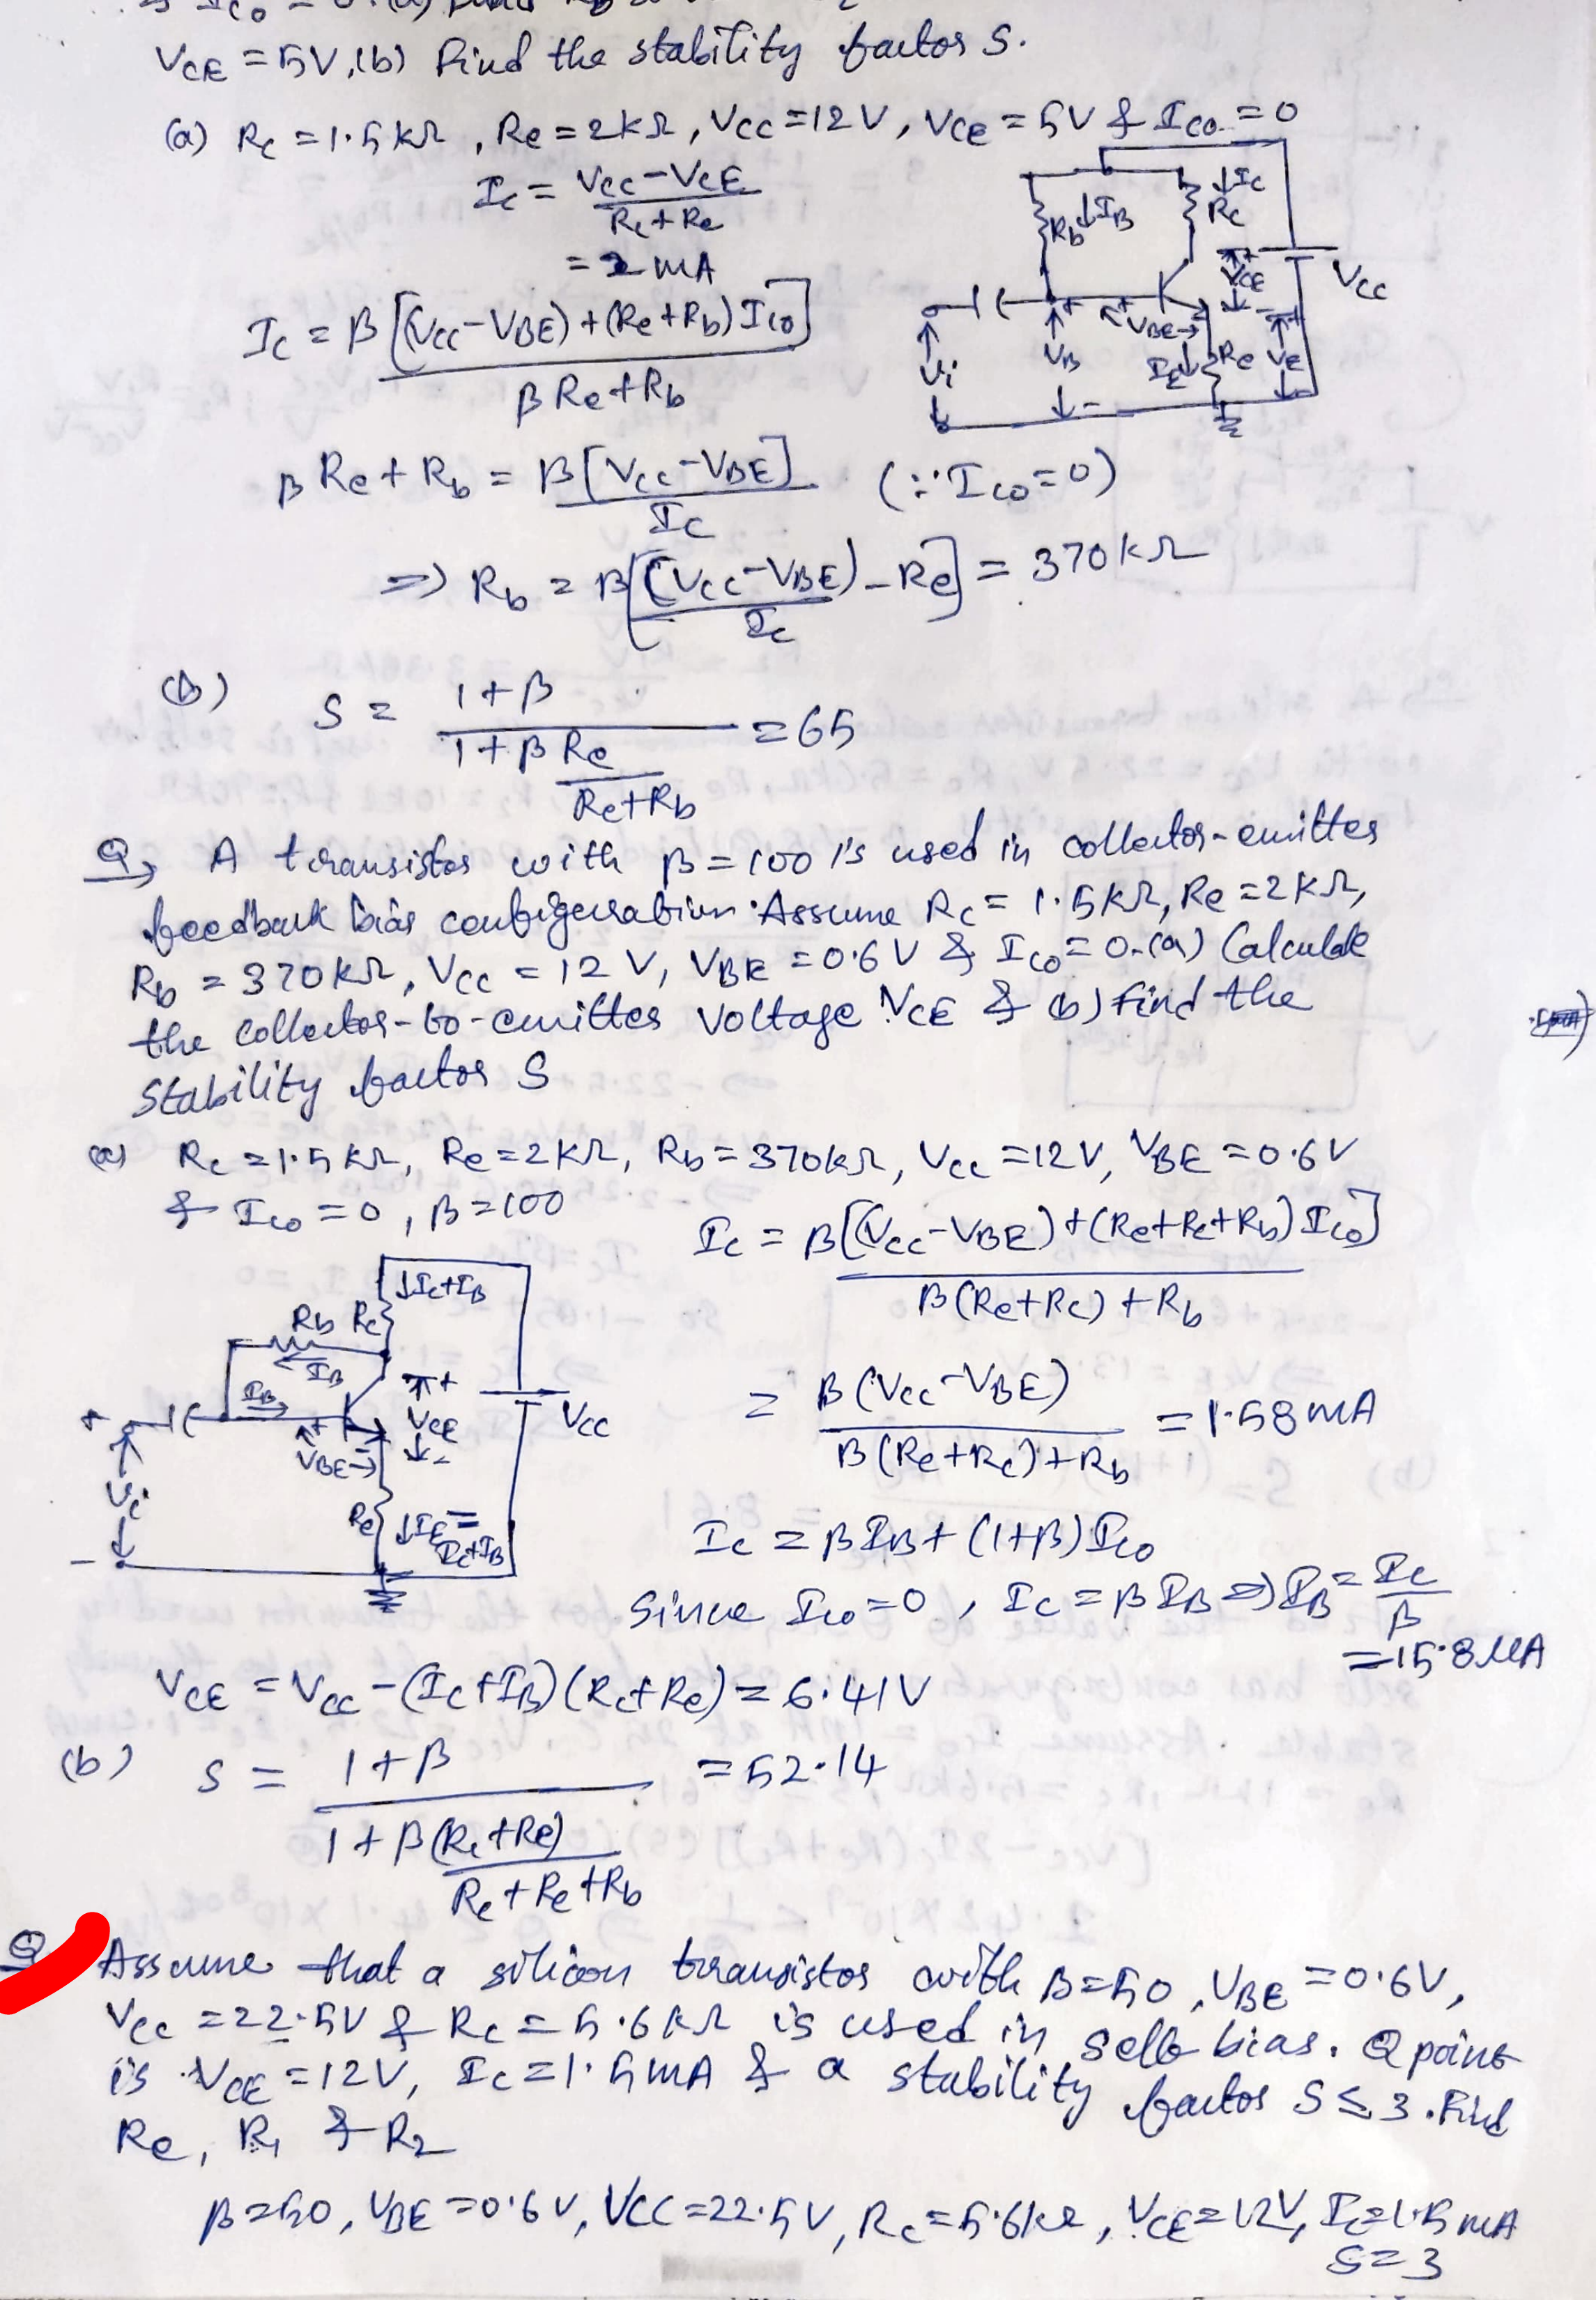 VCE = 5V, (b) Find the stability factor S.
(a) Rc = 1.5kΩ, Re = 2kΩ, Vcc = 12V, VCE = 5V & Ico = 0
Ic = Vcc - VCE / Rc + Re
= 2 mA
Ic = β[(Vcc - VBE) + (Re + Rb) Ico] / β Re + Rb
↓IB
Rb
↓Ic
Rc
VCE
Vcc
Vi
VB
VBE
IE↓
Re
VE
β Re + Rb = β[Vcc - VBE] / Ic (∵ Ico = 0)
=> Rb = β[(Vcc - VBE) / Ic - Re] = 370kΩ
(b) S = 1 + β / 1 + β Re / Re + Rb = 65
Q, A transistor with β = 100 is used in collector-emitter
feedback bias configeration. Assume Rc = 1.5kΩ, Re = 2kΩ,
Rb = 370kΩ, Vcc = 12 V, VBE = 0.6V & Ico = 0. (a) Calculate
the collector-to-emitter voltage VCE & (b) Find the
stability factor S
(a) Rc = 1.5kΩ, Re = 2kΩ, Rb = 370kΩ, Vcc = 12V, VBE = 0.6V
& Ico = 0, β = 100
Ic = β[(Vcc - VBE) + (Re + Rc + Rb) Ico] / β(Re + Rc) + Rb
= β(Vcc - VBE) / β(Re + Rc) + Rb = 1.58mA
↓Ic+IB
Rb
Rc
IB
IB
VCE
Vcc
VBE
Vi
Re
↓IE = Ic+IB
Ic = βIB + (1+β) Ico
Since Ico = 0, Ic = β IB => IB = Ic / β
= 15.8 μA
VCE = Vcc - (Ic + IB)(Rc + Re) = 6.41V
(b) S = 1 + β / 1 + β(Rc + Re) / Rc + Re + Rb = 52.14
Q Assume that a silicon transistor with β = 50, VBE = 0.6V,
Vcc = 22.5V & Rc = 5.6kΩ is used in self bias. Q point
is VCE = 12V, Ic = 1.5mA & a stability factor S ≤ 3. Find
Re, R1 & R2
β = 50, VBE = 0.6V, VCC = 22.5V, Rc = 5.6kΩ, VCE = 12V, Ic = 1.5mA
S = 3